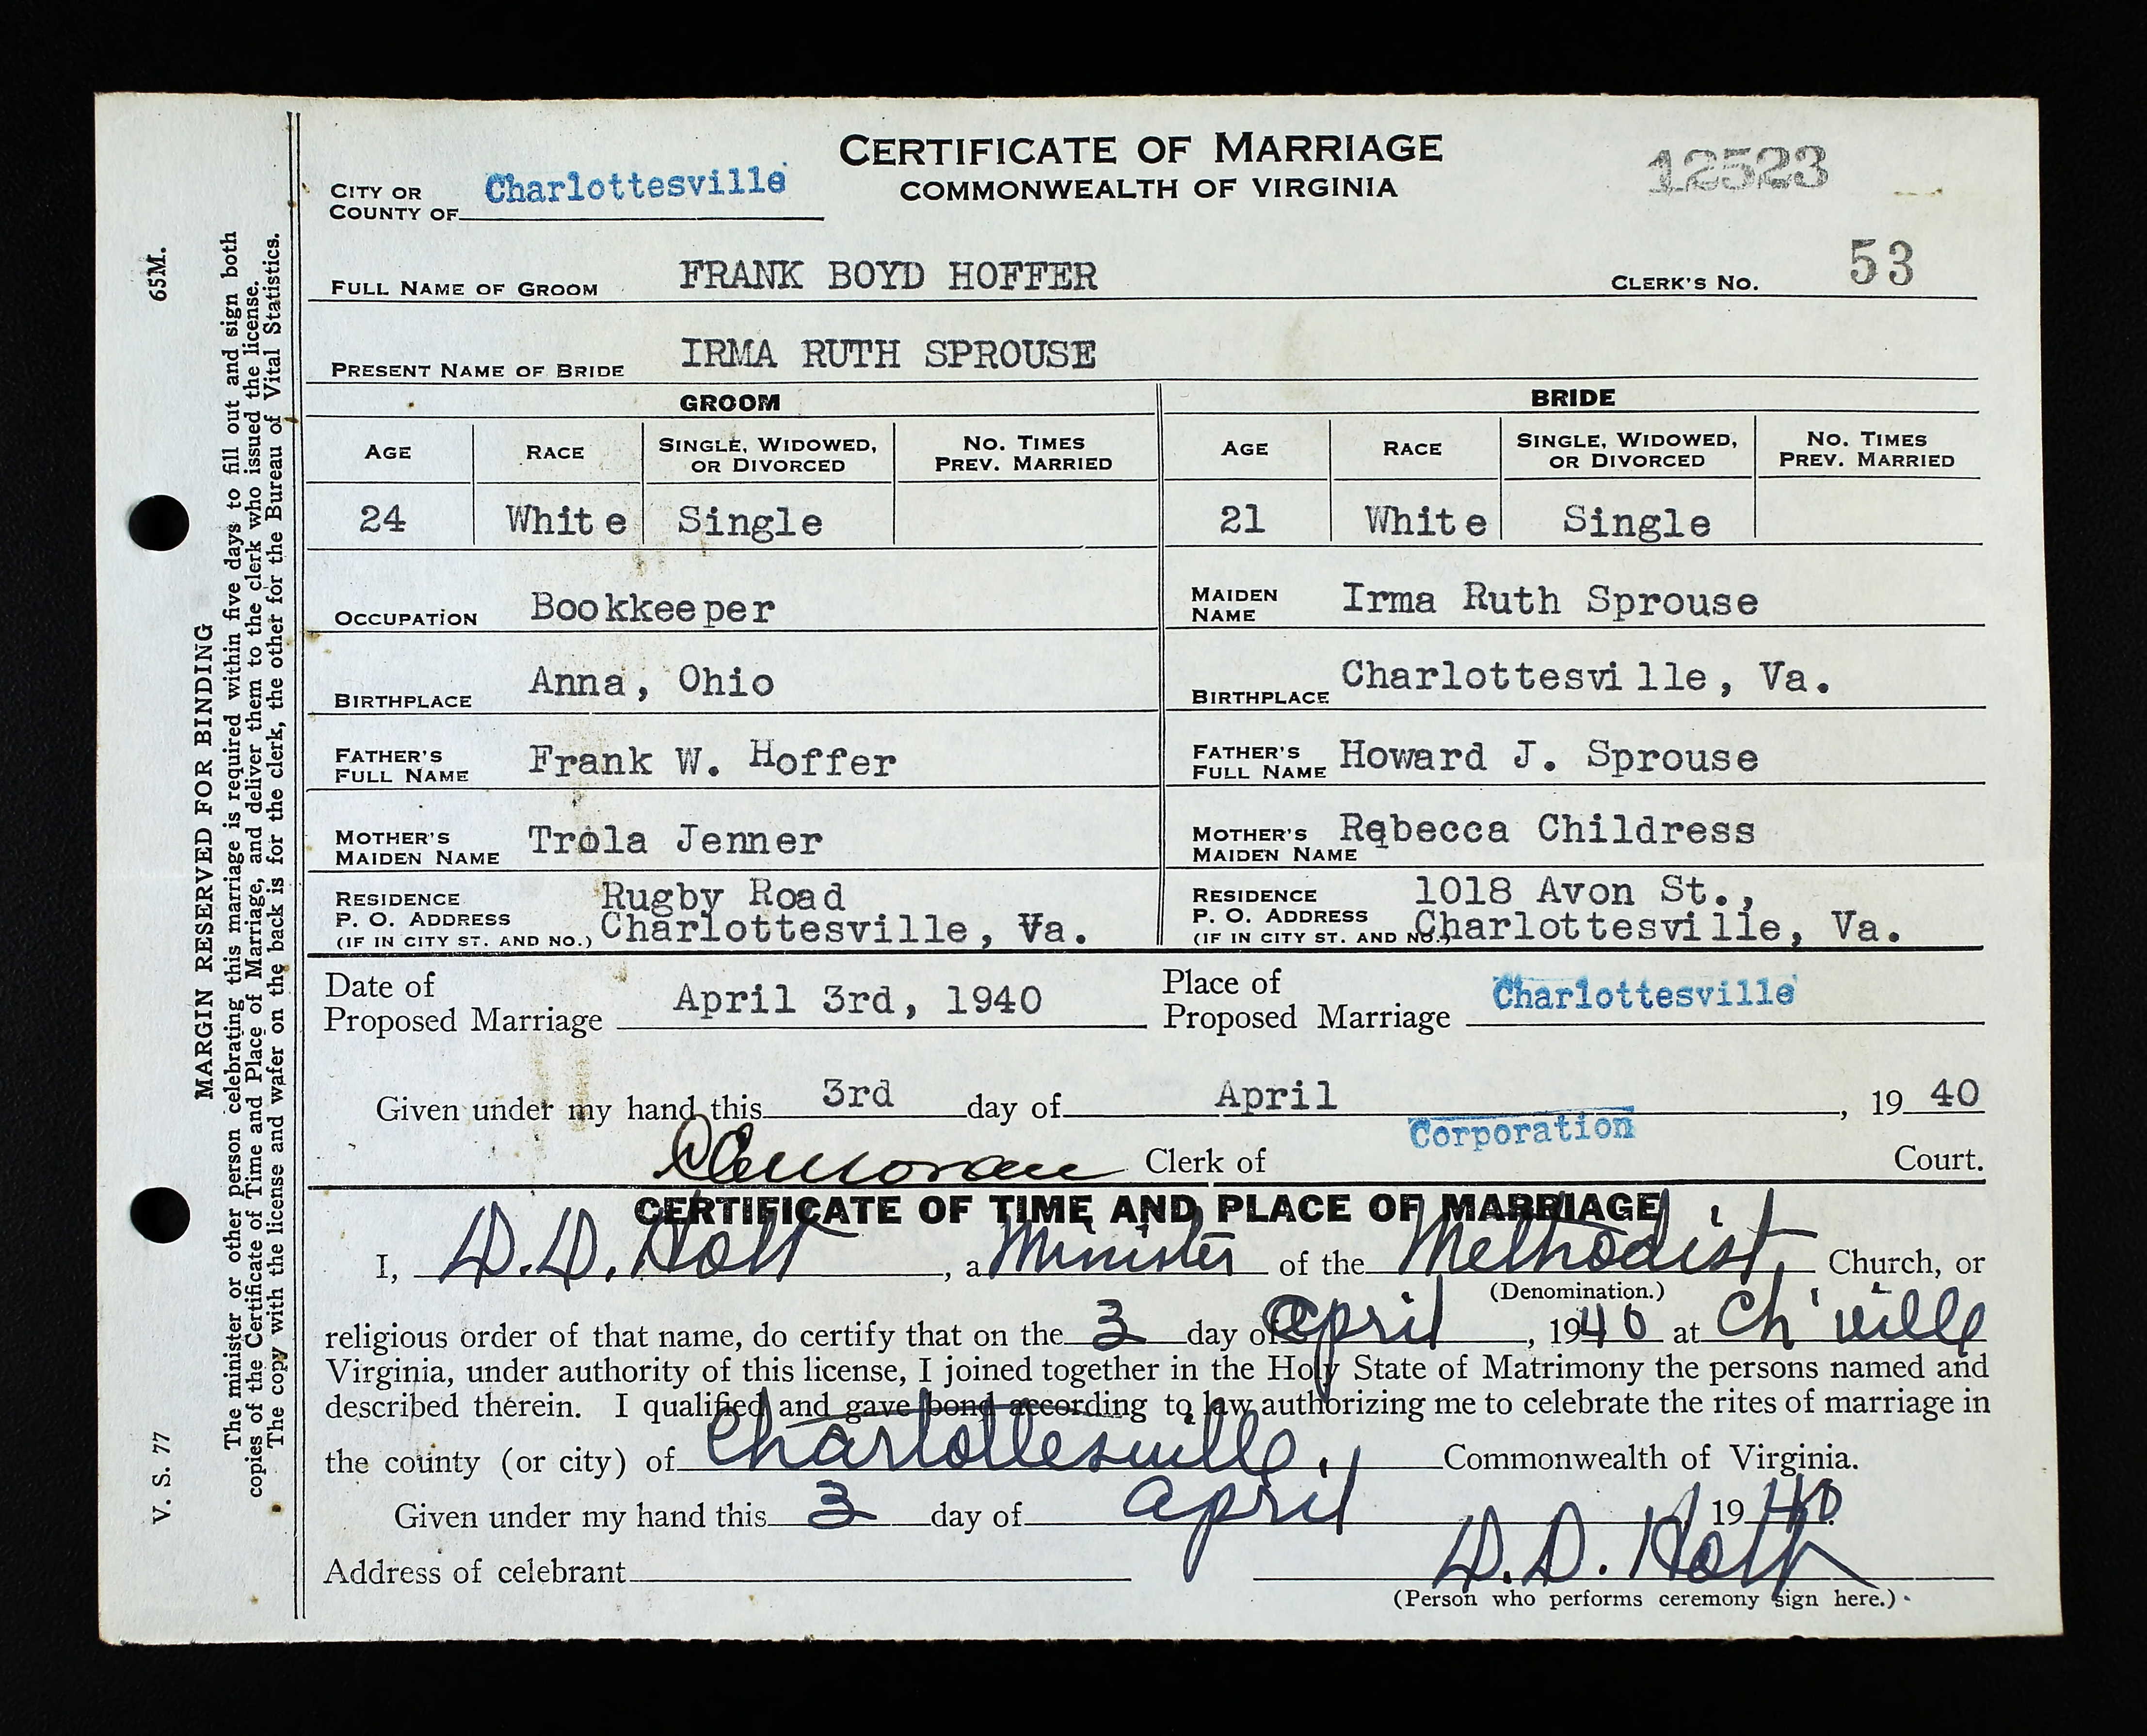 CERTIFICATE OF MARRIAGE
COMMONWEALTH OF VIRGINIA
12523
CITY OR
COUNTY OF Charlottesville
FULL NAME OF GROOM FRANK BOYD HOFFER CLERK'S NO. 53
PRESENT NAME OF BRIDE IRMA RUTH SPROUSE
GROOM BRIDE
AGE RACE SINGLE, WIDOWED, OR DIVORCED NO. TIMES PREV. MARRIED AGE RACE SINGLE, WIDOWED, OR DIVORCED NO. TIMES PREV. MARRIED
24 White Single 21 White Single
OCCUPATION Bookkeeper MAIDEN NAME Irma Ruth Sprouse
BIRTHPLACE Anna, Ohio BIRTHPLACE Charlottesville, Va.
FATHER'S FULL NAME Frank W. Hoffer FATHER'S FULL NAME Howard J. Sprouse
MOTHER'S MAIDEN NAME Trola Jenner MOTHER'S MAIDEN NAME Rebecca Childress
RESIDENCE Rugby Road RESIDENCE 1018 Avon St.,
P. O. ADDRESS Charlottesville, Va. P. O. ADDRESS Charlottesville, Va.
(IF IN CITY ST. AND NO.) (IF IN CITY ST. AND NO.)
Date of Proposed Marriage April 3rd, 1940 Place of Proposed Marriage Charlottesville
Given under my hand this 3rd day of April, 1940
Clerk of Corporation Court.
CERTIFICATE OF TIME AND PLACE OF MARRIAGE
I, D. D. Holt, a Minister of the Methodist Church, or
(Denomination.)
religious order of that name, do certify that on the 3 day of April, 1940 at Ch'ville
Virginia, under authority of this license, I joined together in the Holy State of Matrimony the persons named and
described therein. I qualified and gave bond according to law authorizing me to celebrate the rites of marriage in
the county (or city) of Charlottesville, Commonwealth of Virginia.
Given under my hand this 3 day of April, 1940
Address of celebrant D. D. Holt
(Person who performs ceremony sign here.)
65M.
V. S. 77
MARGIN RESERVED FOR BINDING
The minister or other person celebrating this marriage is required within five days to fill out and sign both
copies of the Certificate of Time and Place of Marriage, and deliver them to the clerk who issued the license.
The copy with the license and wafer on the back is for the clerk, the other for the Bureau of Vital Statistics.